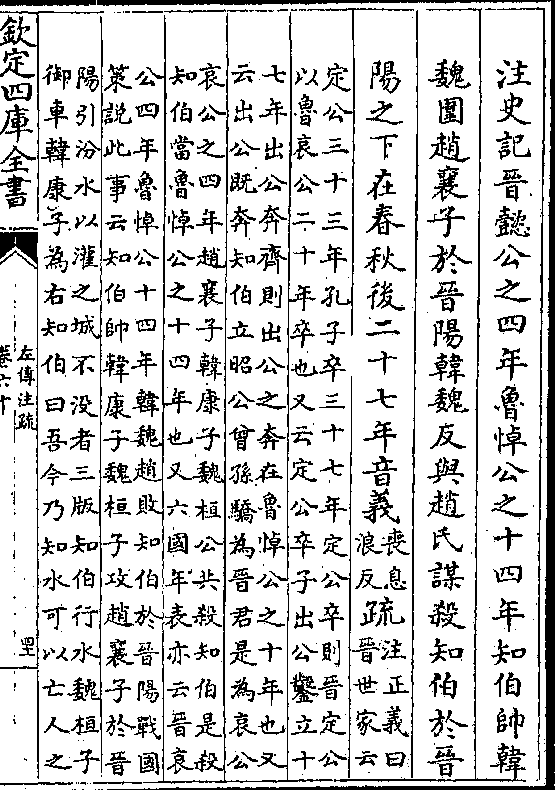 注史記晉懿公之四年魯悼公之十四年知伯帥韓
魏圍趙襄子於晉陽韓魏反與趙氏謀殺知伯於晉
陽之下在春秋後二十七年音義喪息浪反疏注正義曰晉世家云
定公三十三年孔子卒三十七年定公卒則晉定公
以魯哀公二十年卒也又云定公卒子出公鑿立十
七年出公奔齊則出公之奔在魯悼公之十年也又
云出公既奔知伯立昭公曾孫驕為晉君是為哀公
哀公之四年趙襄子韓康子魏桓公共殺知伯是殺
知伯當魯悼公之十四年也又六國年表亦云晉哀
公四年魯悼公十四年韓魏趙敗知伯於晉陽戰國
策說此事云知伯帥韓康子魏桓子攻趙襄子於晉
陽引汾水以灌之城不没者三版知伯行水魏桓子
御車韓康子為右知伯曰吾今乃知水可以亡人之
欽定四庫全書
左傳注疏
卷六十